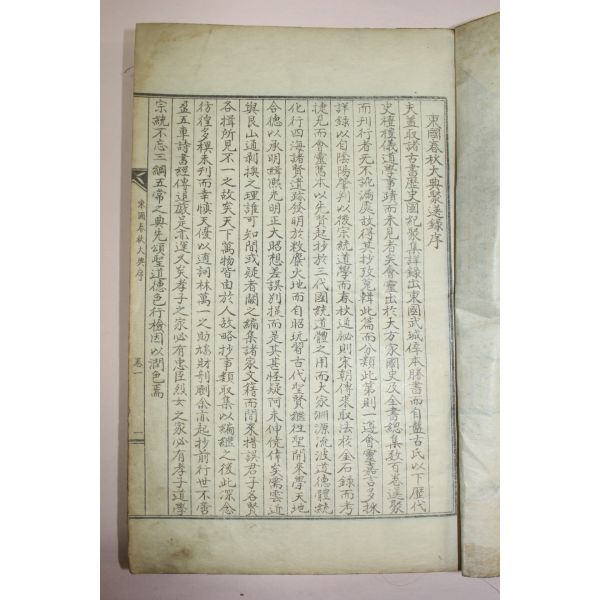 東國春秋大典彙選錄序
夫盖取諸古書歷史國紀聚集詳錄出東國武城倖本勝書而自盤古氏以下歷代
史禮禮儀道學事蹟而未見者矣會靈出於大方家國史及金書總集數百卷選聚
而刊行者无不訛漏處故得其抄攷冤輯此篇而分類此第則一邊會靈嘉言多採
詳錄以自陰陽肇判以後宗統道學而春秋通秘則宋朝傳來取法於金石錄而考
捷見而會靈舊本以先賢起抄於三代國統道體之用而大家淵源流波道德體統
化行四海諸賢遺跡發明於救麋火地而自昭玩習古代聖賢繼往聖開來學天地
合德以承明輯熙光明正大昭想差誤別提而是其甚怪疑阿未伸僥倖矣需雲近
與艮山道剥換之理誰可知聞或疑者闕之編集諸家文籍而間來措誤君子各賢
各揖所見不一之故矣天下萬物皆由於人故略抄事類取集以編繼之後此深念
彷徨多積未刊而幸愼天優以通詞林萬一之助鳩財刊劂余亦起抄前行世不啻
盈五車詩書經傳退藏是不運久矣孝子之家必有忠臣烈女之家必有孝子道學
宗統不忘三綱五常之典先頌聖道德色行檢因以潤色焉
東國春秋大典序
卷一
一